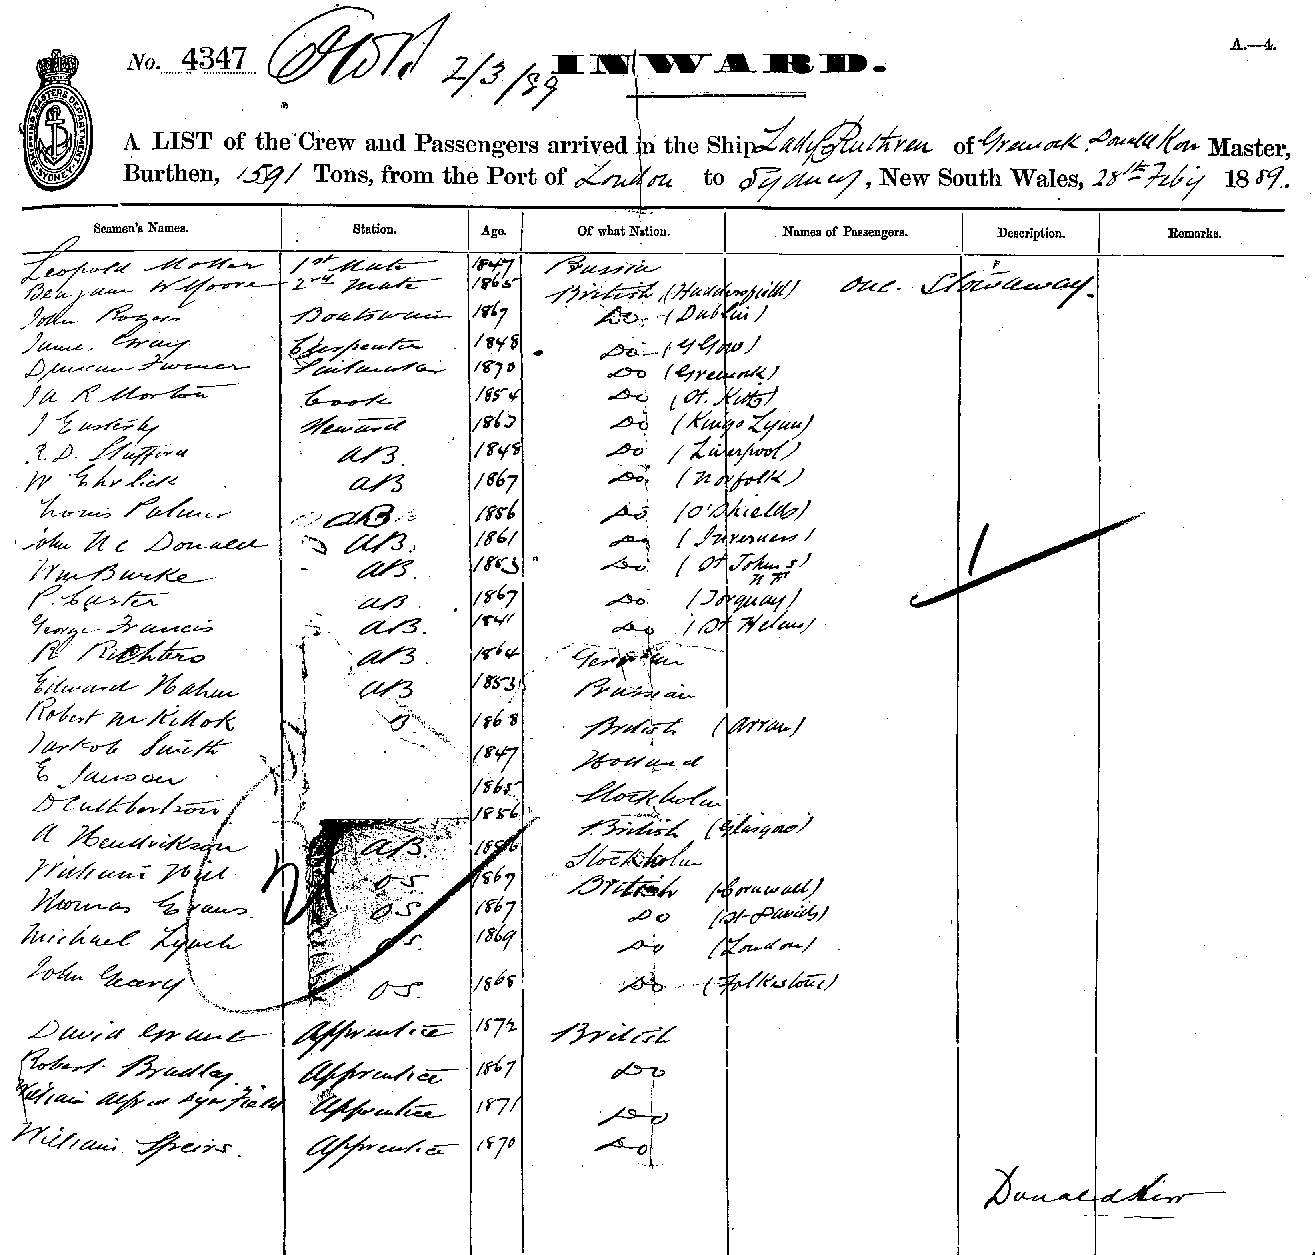 A.—4.
No. 4347 2/3/89 INWARD.
SHIPPING MASTERS DEPARTMENT SYDNEY
A LIST of the Crew and Passengers arrived in the Ship Lady Ruthven of Greenock, Donald Kerr Master,
Burthen, 1591 Tons, from the Port of London to Sydney, New South Wales, 28th Feby 1889.
Seamen's Names. Station. Age. Of what Nation. Names of Passengers. Description. Remarks.
Leopold Moller 1st Mate 1847 Prussia
Benjamin W Moore 2nd Mate 1865 British (Huddersfield) one Stowaway.
John Rogers Boatswain 1867 Do (Dublin)
James Craig Carpenter 1848 Do (GGow)
Duncan Turner 1870 Do (Greenock)
Ja R Morton Cook 1854 Do (St. Kitts)
J Easterby Steward 1863 Do (Kings Lynn)
R. D. Stafford AB. 1848 Do (Liverpool)
W Ehrlick AB 1867 Do (Norfolk)
Louis Palmer AB 1856 Do (S Shields)
John Mc Donald AB. 1861 Do (Inverness)
Wm Burke AB. 1853 Do (St Johns
P. Carter AB 1867 Do (Torquay)
George Francis AB. 1841 Do (St Helens)
R Richters AB. 1864 German
Edward Hahn AB 1853 Prussian
Robert McKillok B 1868 British (Arran)
Jarkob Smith 1847 Holland
E Janson 1865 Stockholm
D Cuthbertson 1856 British (Glasgow)
A Hendrickson AB. 1856 Stockholm
William Hill OS 1867 British (Cornwall)
Thomas Evans. OS. 1867 Do (St Davids)
Michael Lynch OS. 1869 Do (London)
John Geary OS. 1868 Do (Folkestone)
David Grant Apprentice 1872 British
Robert Bradley. Apprentice 1867 Do
William Alfred Dyer Field Apprentice 1871 Do
William Speirs. Apprentice 1870 Do
Donald Kerr